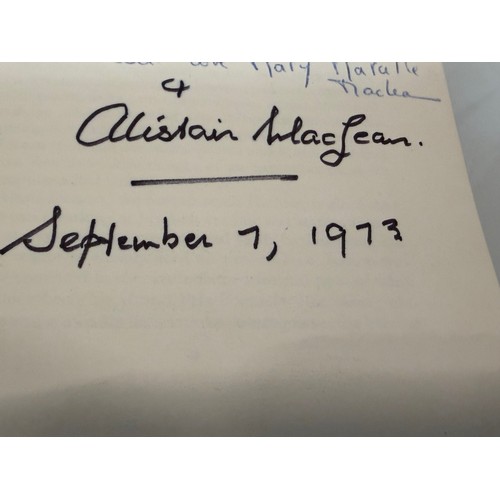 Mary Marcelle
Maclean
&
Alistair MacLean.
September 7, 1973